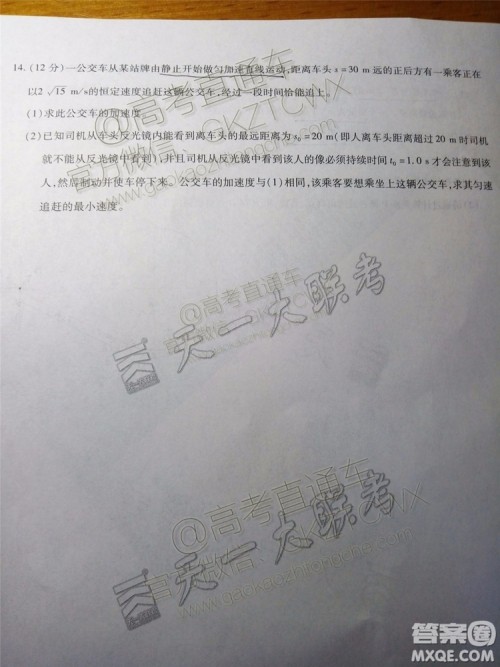 14.(12 分)一公交车从某站牌由静止开始做匀加速直线运动,距离车头 s=30 m 远的正后方有一乘客正在
以2√15 m/s的恒定速度追赶这辆公交车,经过一段时间恰能追上。
(1)求此公交车的加速度。
(2)已知司机从车头反光镜内能看到离车头的最远距离为 s₀=20 m(即人离车头距离超过 20 m时司机
就不能从反光镜中看到),并且司机从反光镜中看到该人的像必须持续时间 t₀=1.0 s才会注意到该
人,然后制动并使车停下来。公交车的加速度与(1)相同,该乘客要想乘坐上这辆公交车,求其匀速
追赶的最小速度。
@高考直通车
官方微信:GKZTCWX
www.gaokaozhitongche.com
@高考直通车
天一大联考
@高考直通车
天一大联考
答案圈
MXQE.COM